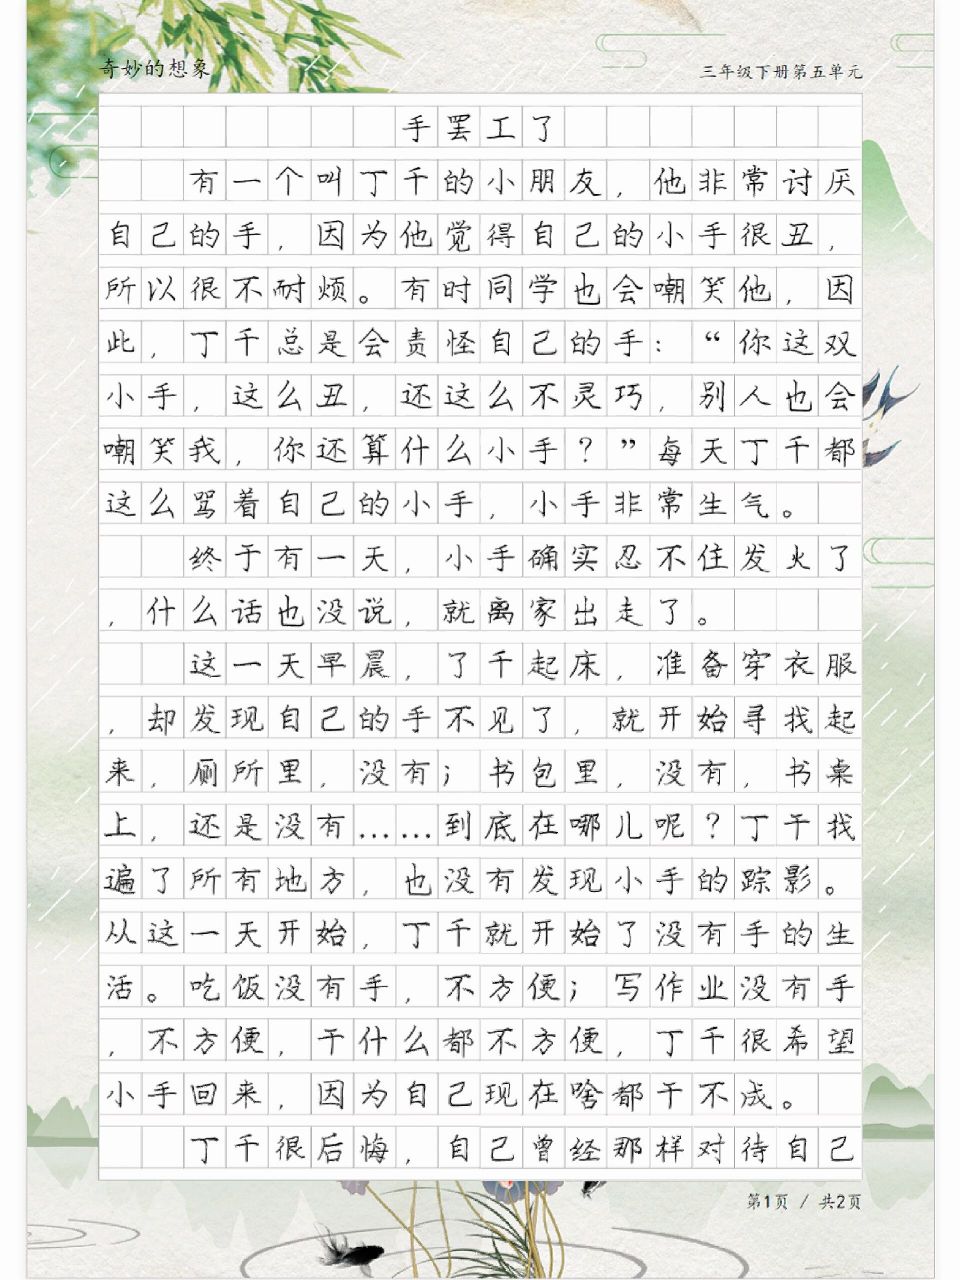 奇妙的想象
三年级下册第五单元
手罢工了
有一个叫丁千的小朋友，他非常讨厌
自己的手，因为他觉得自己的小手很丑，
所以很不耐烦。有时同学也会嘲笑他，因
此，丁千总是会责怪自己的手：“你这双
小手，这么丑，还这么不灵巧，别人也会
嘲笑我，你还算什么小手？”每天丁千都
这么骂着自己的小手，小手非常生气。
终于有一天，小手确实忍不住发火了
，什么话也没说，就离家出走了。
这一天早晨，了千起床，准备穿衣服
，却发现自己的手不见了，就开始寻找起
来，厕所里，没有；书包里，没有，书桌
上，还是没有……到底在哪儿呢？丁千找
遍了所有地方，也没有发现小手的踪影。
从这一天开始，丁千就开始了没有手的生
活。吃饭没有手，不方便；写作业没有手
，不方便，干什么都不方便，丁千很希望
小手回来，因为自己现在啥都干不成。
丁千很后悔，自己曾经那样对待自己
第1页 / 共2页